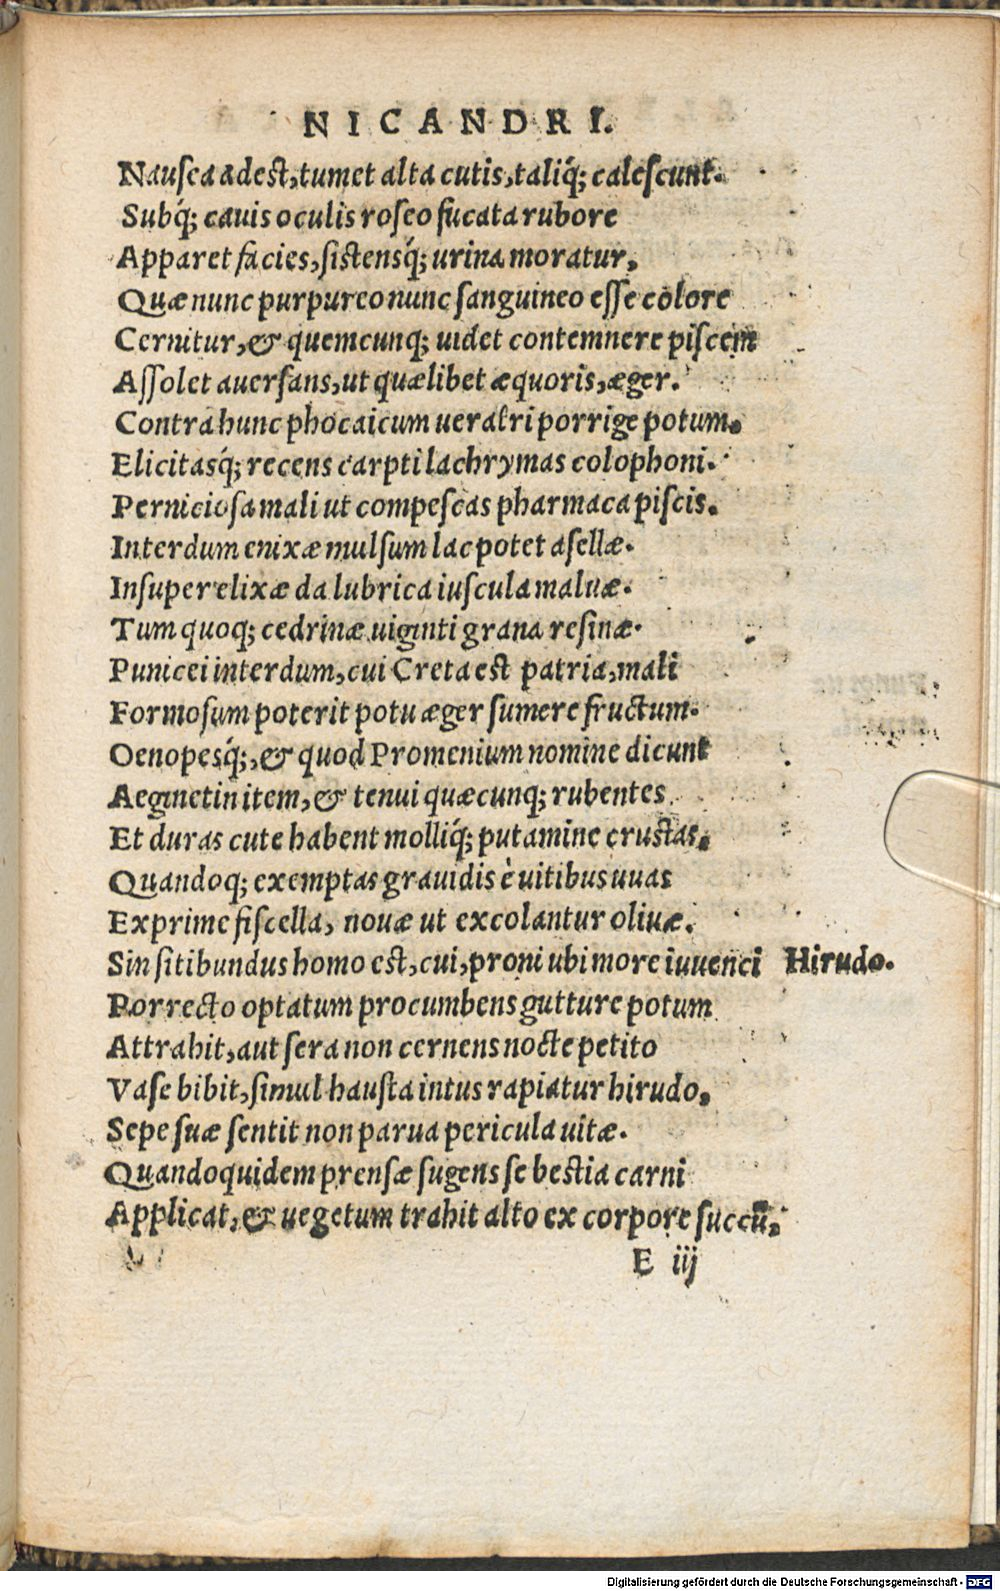 NICANDRI.
Nausea adest, tumet alta cutis, taliq́; calescunt.
Subq́; cauis oculis roseo fucata rubore
Apparet facies, sistensq́; urina moratur.
Quæ nunc purpureo nunc sanguineo esse colore
Cernitur, & quemcunq; uidet contemnere piscem
Assolet auersans, ut quælibet æquoris, æger.
Contra hunc phocaicum ueratri porrige potum.
Elicitasq́; recens carpti lachrymas colophoni.
Perniciosa mali ut compescas pharmaca piscis.
Interdum enixæ mulsum lac potet asellæ.
Insuper elixæ da lubrica iuscula maluæ.
Tum quoq; cedrinæ uiginti grana resinæ.
Punicei interdum, cui Creta est patria, mali
Formosum poterit potu æger sumere fructum.
Oenopesq́;, & quod Promenium nomine dicunt
Aeginetin item, & tenui quæcunq; rubentes
Et duras cute habent molliq́; putamine crustas.
Quandoq; exemptas grauidis è uitibus uuas
Exprime fiscella, nouæ ut excolantur oliuæ.
Sin sitibundus homo est, cui, proni ubi more iuuenci Hirudo.
Porrecto optatum procumbens gutture potum
Attrahit, aut sera non cernens nocte petito
Vase bibit, simul hausta intus rapiatur hirudo,
Sepe suæ sentit non parua pericula uitæ.
Quandoquidem prensæ sugens se bestia carni
Applicat, & uegetum trahit alto ex corpore succū.
E iij
Digitalisierung gefördert durch die Deutsche Forschungsgemeinschaft - DFG